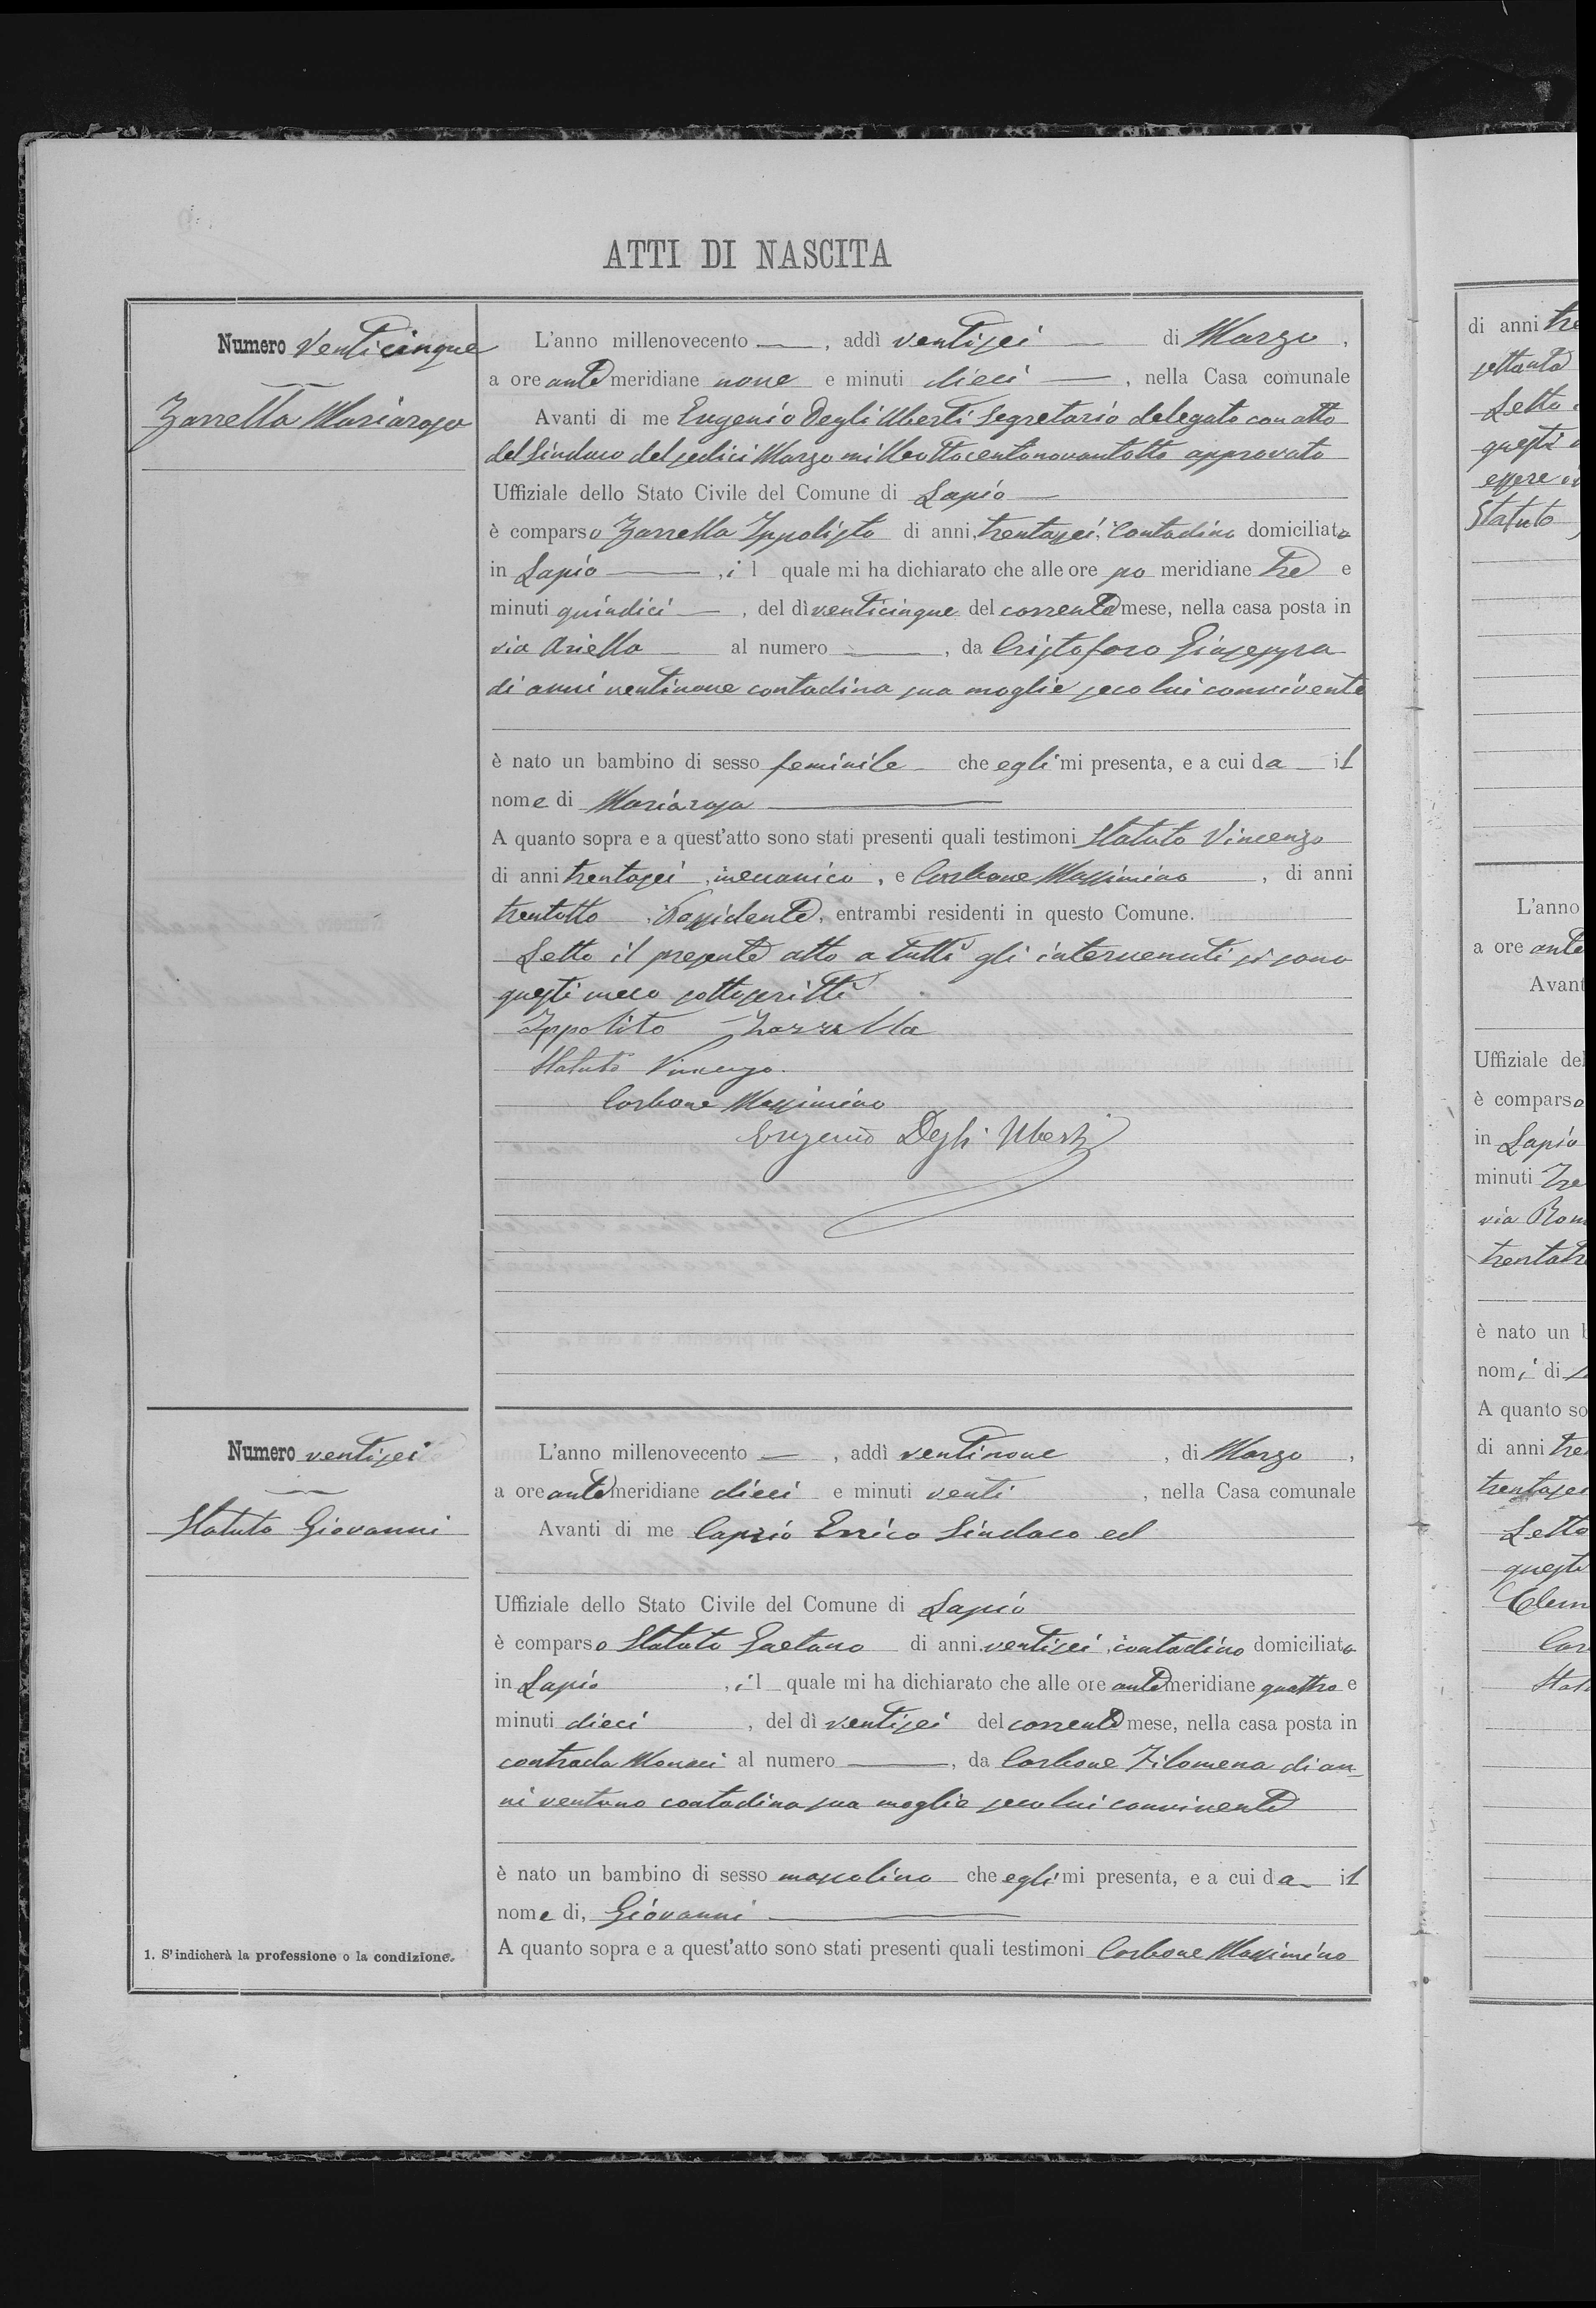 ATTI DI NASCITA
Numero Venticinque
Zarrella Mariarosa
L'anno millenovecento —, addì ventisei — di Marzo,
a ore ante meridiane nove e minuti dieci —, nella Casa comunale
Avanti di me Eugenio Degli Uberti Segretario delegato con atto
del Sindaco del sedici Marzo milleottocentonovantotto approvato
Uffiziale dello Stato Civile del Comune di Lapio —
è comparso Zarrella Ippolisto di anni trentasei, Contadino domiciliato
in Lapio —, il quale mi ha dichiarato che alle ore po meridiane tre e
minuti quindici —, del dì venticinque del corrente mese, nella casa posta in
via Ariella — al numero —, da Cristofaro Giuseppa
di anni ventinove contadina sua moglie seco lui convivente
è nato un bambino di sesso feminile — che egli mi presenta, e a cui da — il
nome di Mariarosa —
A quanto sopra e a quest'atto sono stati presenti quali testimoni Statuto Vincenzo
di anni trentasei, meccanico, e Carbone Massimino, di anni
trentotto, Possidente, entrambi residenti in questo Comune.
Letto il presente atto a tutti gli intervenuti si sono
questi meco sottoscritti
Ippolito Zarrella
Statuto Vincenzo
Carbone Massimino
Eugenio Degli Uberti
Numero ventisei
Statuto Giovanni
L'anno millenovecento —, addì ventinove, di Marzo,
a ore ante meridiane dieci e minuti venti, nella Casa comunale
Avanti di me Caprio Errico Sindaco ed
Uffiziale dello Stato Civile del Comune di Lapio
è comparso Statuto Gaetano di anni ventisei, contadino domiciliato
in Lapio, il quale mi ha dichiarato che alle ore ante meridiane quattro e
minuti dieci, del dì ventisei del corrente mese, nella casa posta in
contrada al numero —, da Carbone Filomena di an-
ni ventuno contadina sua moglie seco lui convivente
è nato un bambino di sesso mascolino che egli mi presenta, e a cui da — il
nome di, Giovanni —
A quanto sopra e a quest'atto sono stati presenti quali testimoni Carbone Massimino
1. S'indicherà la professione o la condizione.
di anni
Letto
Statuto
L'anno
a ore ante
Avant
Uffiziale del
è comparso
in Lapio
minuti
via
è nato un b
nomi di
A quanto so
di anni
Letto